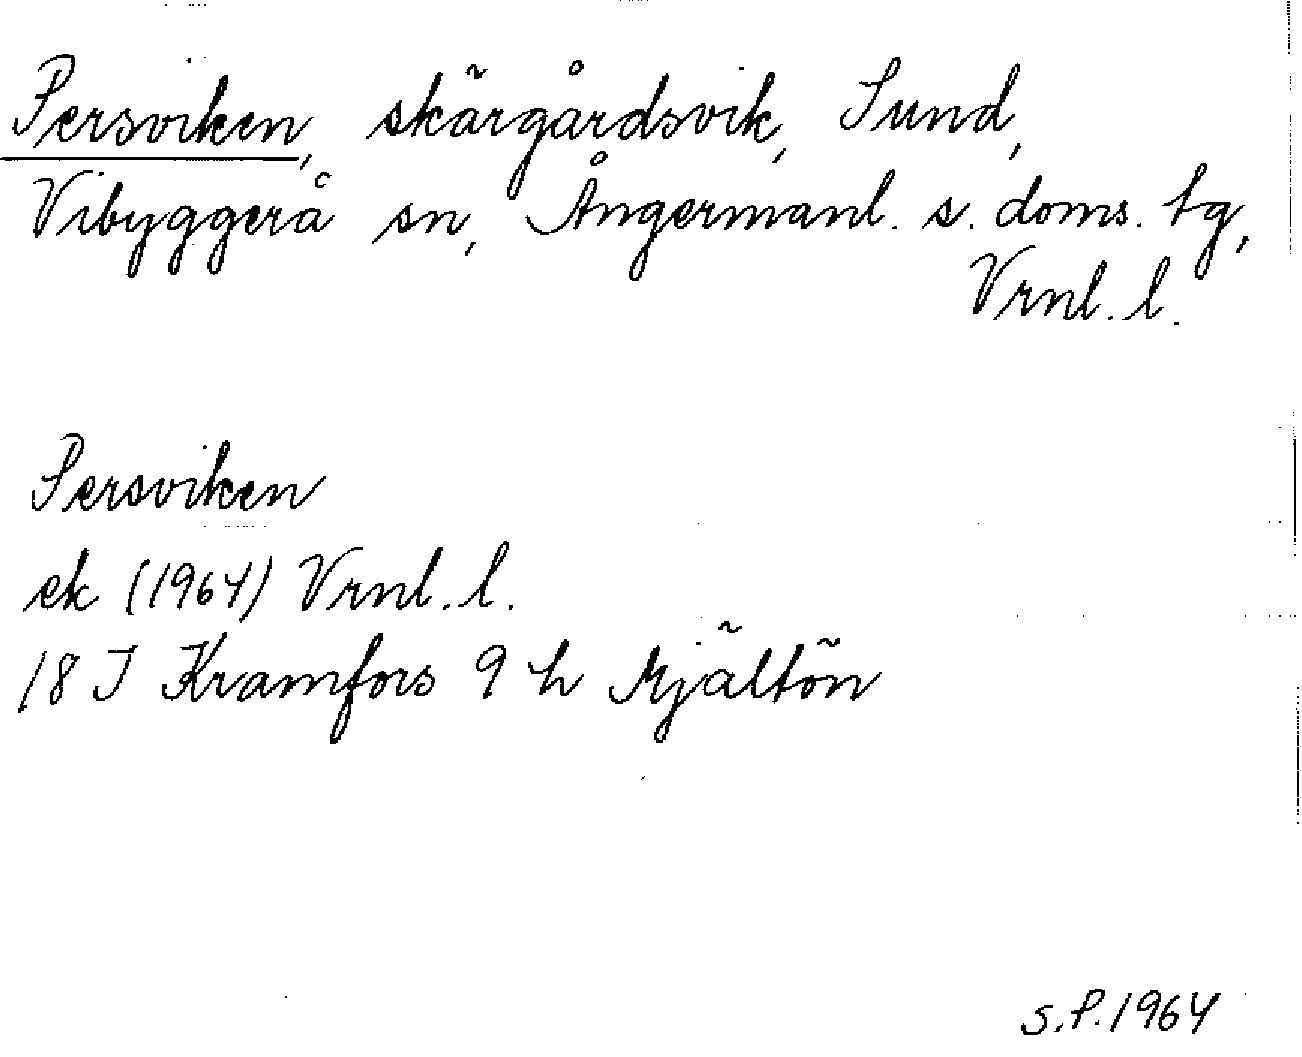 Persviken, skärgårdsvik, Sund,
Vibyggerå sn, Ångermanl. s. doms. tg,
Vrnl. l.
Persviken
ek (1964) Vrnl. l.
18 I Kramfors 9 h Mjältön
S.P. 1964